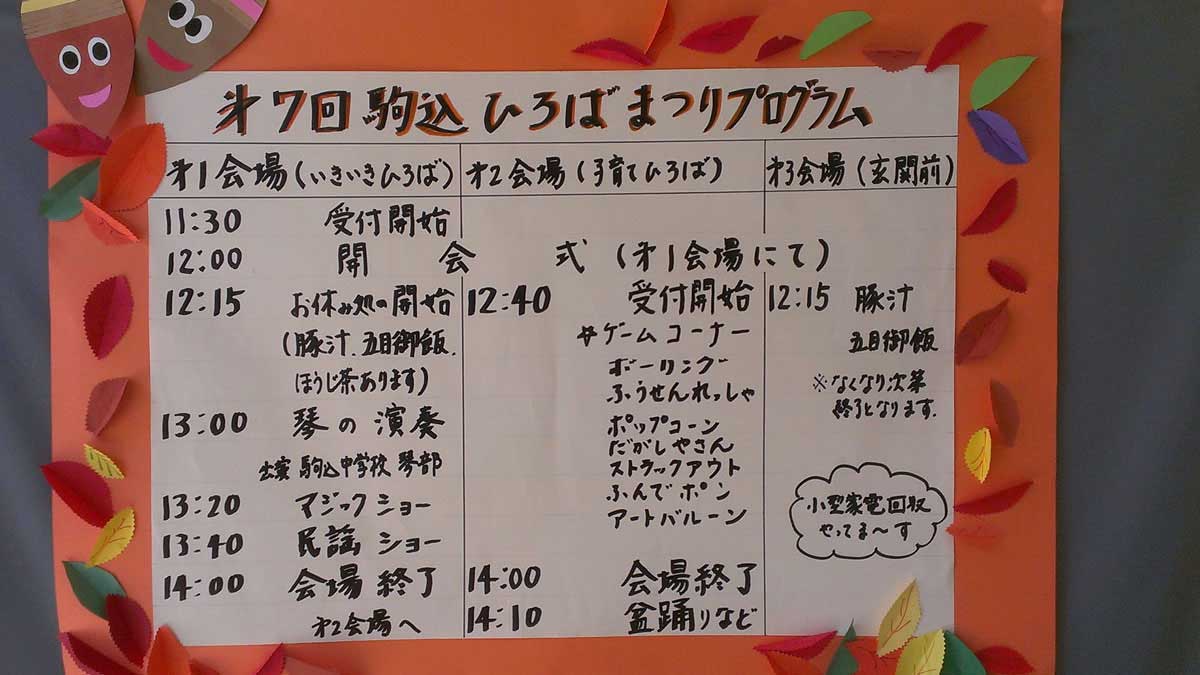 才7回 駒込 ひろば まつりプログラム
才1会場(いきいきひろば)
11:30 受付開始
12:00 開会式(才1会場にて)
12:15 お休み処の開始
(豚汁.五目御飯.
ほうじ茶あります)
13:00 琴の演奏
出演 駒込中学校 琴部
13:20 マジックショー
13:40 民謡ショー
14:00 会場終了
才2会場へ
才2会場(子育てひろば)
12:40 受付開始
#ゲームコーナー
ボーリング
ふうせんれっしゃ
ポップコーン
だがしやさん
ストラックアウト
ふんでポン
アートバルーン
14:00 会場終了
14:10 盆踊りなど
才3会場(玄関前)
12:15 豚汁
五目御飯
※なくなり次第
終了となります.
小型家電回収
やってま〜す